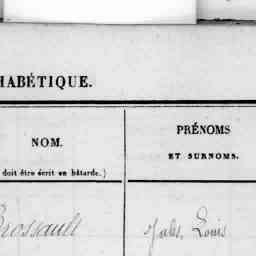 HABÉTIQUE.
NOM.
doit être écrit en bâtarde.)
PRÉNOMS
ET SURNOMS.
Brossault
Jules, Louis